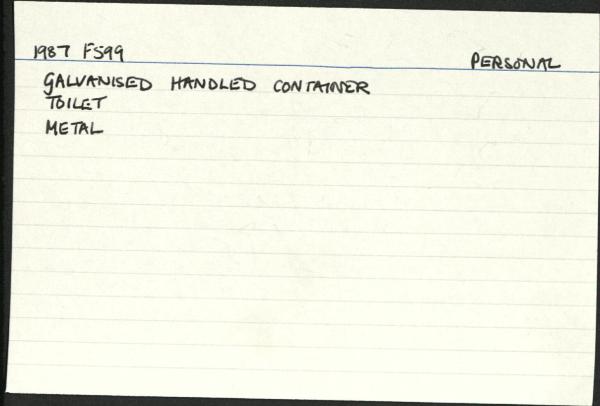 1987 F599 PERSONAL
GALVANISED HANDLED CONTAINER
TOILET
METAL